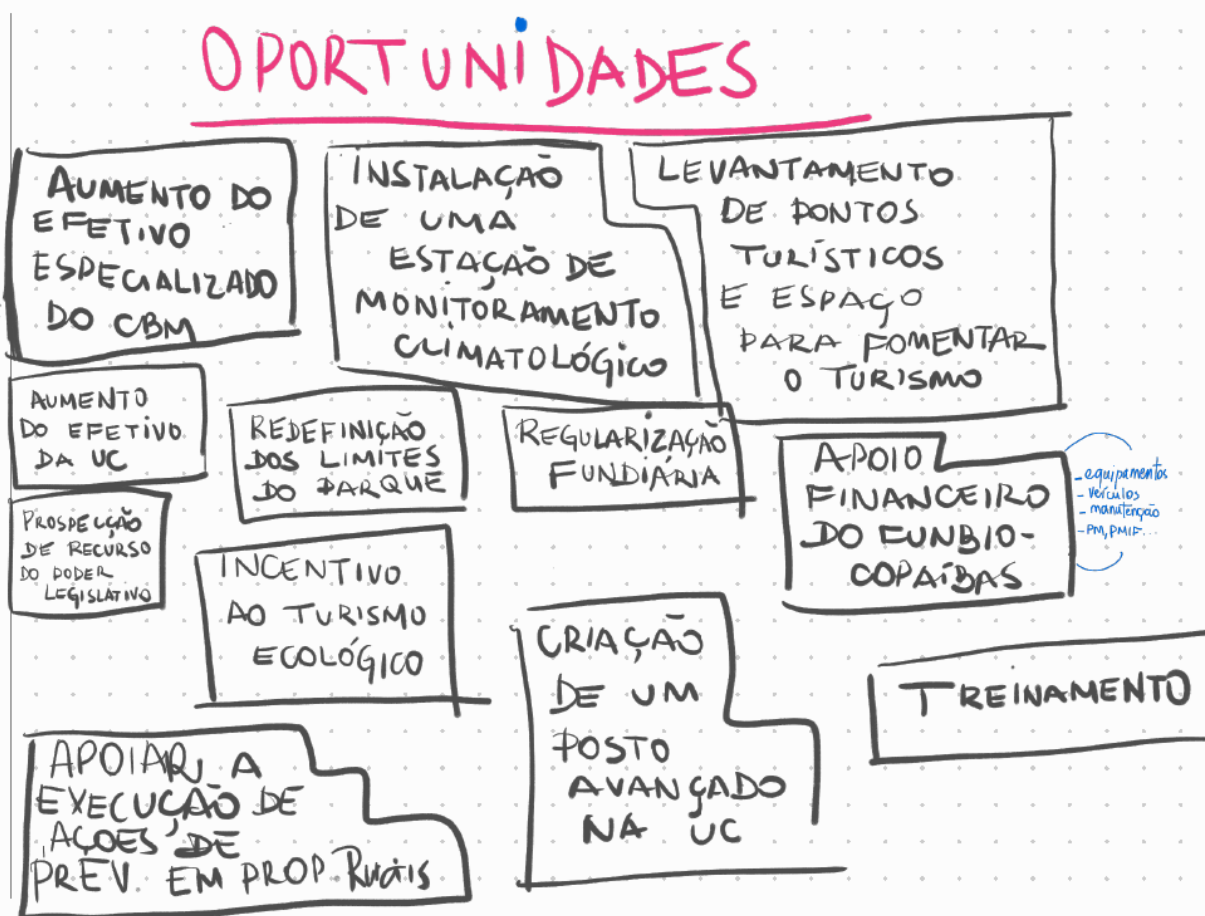 OPORTUNIDADES
AUMENTO DO
EFETIVO
ESPECIALIZADO
DO CBM
INSTALAÇÃO
DE UMA
ESTAÇÃO DE
MONITORAMENTO
CLIMATOLÓGICO
LEVANTAMENTO
DE PONTOS
TURÍSTICOS
E ESPAÇO
PARA FOMENTAR
O TURISMO
AUMENTO
DO EFETIVO
DA UC
REDEFINIÇÃO
DOS LIMITES
DO PARQUE
REGULARIZAÇÃO
FUNDIÁRIA
APOIO
FINANCEIRO
DO FUNBIO-
COPAÍBAS
- equipamentos
- veículos
- manutenção
- PM, PMIF...
PROSPECÇÃO
DE RECURSO
DO PODER
LEGISLATIVO
INCENTIVO
AO TURISMO
ECOLÓGICO
CRIAÇÃO
DE UM
POSTO
AVANÇADO
NA UC
TREINAMENTO
APOIAR A
EXECUÇÃO DE
AÇOES DE
PREV. EM PROP. Rurais